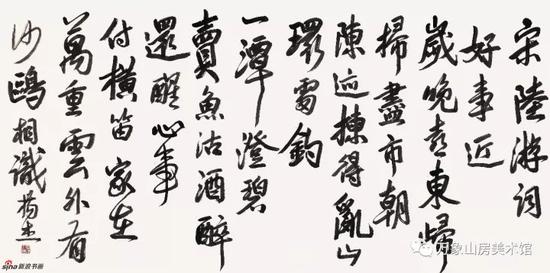 宋陸游詞
好事近
歲晚喜東歸
掃盡市朝
陳迹揀得亂山
環處釣
一潭澄碧
賣魚沽酒醉
還醒心事
付橫笛家在
萬重雲外有
沙鷗相識
sina 新浪书画
万象山房美术馆